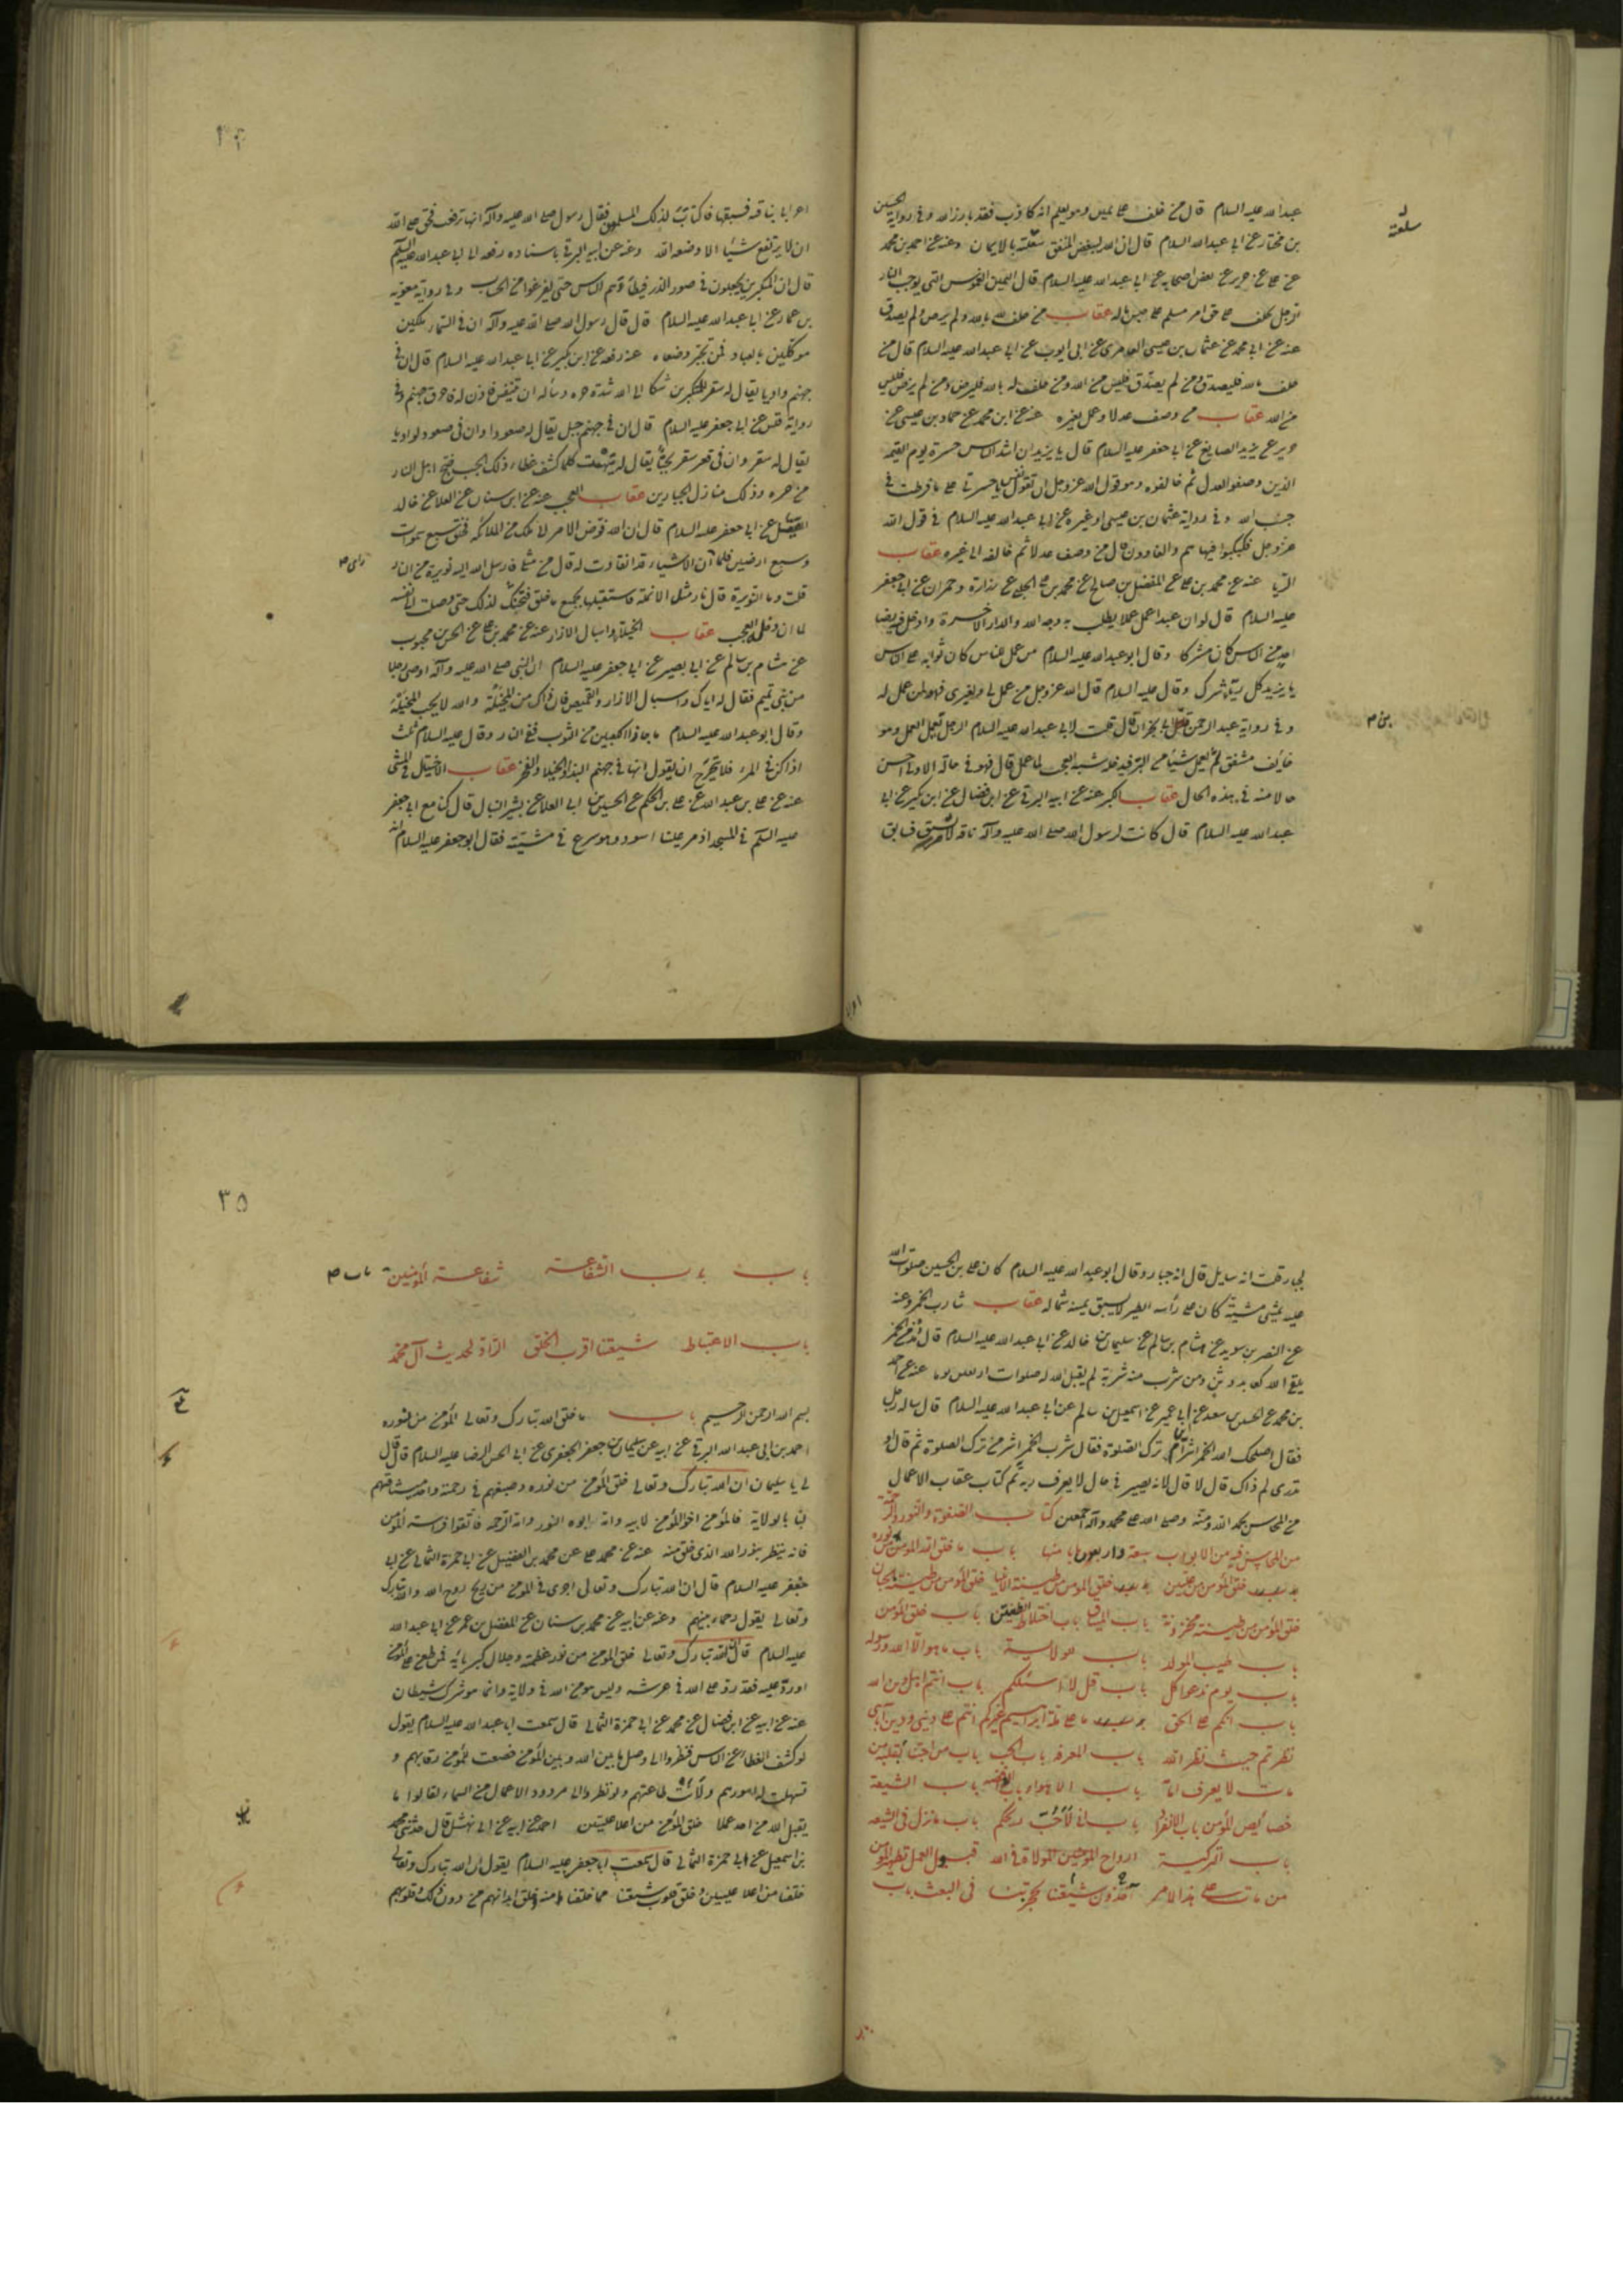 عبدالله عليه السلام قال من حلف على يمين وهو يعلم انه كاذب فقد بارز الله وفى رواية الحسين
بن مختار عن ابى عبدالله السلام قال ان الله ليبغض المنفق سلعته بالايمان وعنه عن احمد بن محمد
عن على عن حريز عن بعض اصحابه عن ابى عبدالله عليه السلام قال اليمين الغموس التى يوجب النار
الرجل يحلف على حق امرء مسلم على حبس ماله عقاب من حلف له بالله ولم يرض ولم يصدق
عنه عن ابى محمد عن عثمان بن عيسى العامرى عن ابى ايوب عن ابى عبدالله عليه السلام قال من
حلف بالله فليصدق ومن لم يصدق فليس من الله ومن حلف له بالله فليرض ومن لم يرض فليس
من الله عقاب من وصف عدلا وعمل بغيره عنه عن ابن محمد عن حماد بن عيسى عن
حريز عن يزيد الصايغ عن ابى جعفر عليه السلام قال يا يزيد ان اشد الناس حسرة يوم القيمه
الذين وصفوا العدل ثم خالفوه وهو قول الله عزوجل ان تقول نفس يا حسرتى على ما فرطت فى
جنب الله وفى رواية عثمان بن عيسى او غيره عن ابى عبدالله عليه السلام فى قول الله
عزوجل فكبكبوا فيها هم والغاوون قال من وصف عدلا ثم خالفه الى غيره عقاب
الريا عنه عن محمد بن على عن المفضل بن صالح عن محمد بن على الحلبى عن زرارة وحمران عن ابى جعفر
عليه السلام قال لو ان عبدا عمل عملا يطلب به وجه الله والدار الاخرة وادخل فيه رضا
احد من الناس كان مشركا وقال ابو عبدالله عليه السلام من عمل للناس كان ثوابه على الناس
يا يزيد كل رياء شرك وقال عليه السلام قال الله عزوجل من عمل لى ولغيرى فهو لمن عمل له
وفى رواية عبد الرحمن بن ابى نجران قال قلت لابى عبدالله عليه السلام الرجل يعمل العمل وهو
خايف مشفق ثم يعمل شيئا من البر فيدخله شبه العجب لما عمل قال فهو فى حاله الاولى احسن
حالا منه فى هذه الحال عقاب الكبر عنه عن ابيه البرقى عن ابن فضال عن ابن بكير عن ابى
عبدالله عليه السلام قال كانت لرسول الله صلى الله عليه وآله ناقة لا تسبق فسابق
سلعته
٣٤
اعرابى بناقته فسبقها فاكتاب لذلك المسلمون فقال رسول صلى الله عليه وآله انها ترفعت فحق على الله
ان لا يرتفع شيئا الا وضعه الله وعنه عن ابيه البرقى باسناده رفعه الى ابى عبدالله عليه السلم
قال ان المتكبرين يجعلون فى صور الذر فيطأوهم الناس حتى يفرغوا من الحساب وفى رواية معويه
بن عمار عن ابى عبدالله عليه السلام قال قال رسول الله صلى الله عليه وآله ان فى السماء ملكين
موكلين بالعباد فمن تجبر وضعاه عنه رفعه عن ابن بكير عن ابى عبدالله عليه السلام قال ان فى
جهنم واديا يقال له سقر للمتكبرين شكا الى الله شدة حره وسأله ان يتنفس فاذن له فاحرق جهنم وفى
رواية عن ابى جعفر عليه السلام قال ان فى جهنم جبل يقال له صعودا وان فى صعود لواديا
يقال له سقر وان فى قعر سقر لجبا يقال له هبهب كلما كشف غطاء ذلك الجب ضج اهل النار
من حره وذلك منازل الجبارين عقاب العجب عنه عن ابن سنان عن العلا عن خالد
الصيقل عن ابى جعفر عليه السلام قال ان الله فوض الامر لملك من الملائكه فخلق سبع سموات
وسبع ارضين فلما ان الاشياء قد انقادت له قال من مثلى فارسل الله اليه نويرة من النار
قلت وما النويرة قال نار مثل الانملة فاستقبلها بجميع ما خلق فتخلل لذلك حتى وصلت الى نفسه
لما ان دخله العجب عقاب الخيلاء واسبال الازار عنه عن محمد بن على عن الحسن بن محبوب
عن هشام بن سالم عن ابى بصير عن ابى جعفر عليه السلام ان النبى صلى الله عليه وآله اوصى رجلا
من بنى تميم فقال له اياك واسبال الازار والقميص فان ذاك من المخيلة والله لا يحب المخيلة
وقال ابو عبدالله عليه السلام ما جاوز الكعبين من الثوب ففى النار وقال عليه السلام ثلث
اذا كن فى المرء فلا تحرج ان يقول انها فى جهنم البذاء والخيلاء والفخر عقاب الاختيال فى المشى
عنه عن على بن عبدالله عن على بن الحكم عن الحسين بن ابى العلا عن بشير النبال قال كنا مع ابى جعفر
عليه السلم فى المسجد اذ مر علينا اسود وهو سرع فى مشيته فقال ابو جعفر عليه السلام انه
لجبار قلت انه سايل قال انه جبار وقال ابو عبدالله عليه السلام كان على بن الحسين صلوات الله
عليه يمشى مشية كان على رأسه الطير لا يسبق يمينه شماله عقاب شارب الخمر وعنه
عن النضر بن سويد عن هشام بن سالم عن سليمان بن خالد عن ابى عبدالله عليه السلام قال مدمن الخمر
يلقى الله كعابد وثن ومن شرب منه شربة لم يقبل الله له صلوات اربعين يوما عنه عن احمد
بن محمد عن الحسين بن سعيد عن ابن ابى عمير عن اسمعيل بن سالم عن ابى عبدالله عليه السلام قال ساله رجل
فقال اصلحك الله الخمر اشر ام ترك الصلوة فقال شرب الخمر اشر من ترك الصلوة ثم قال او
تدرى لم ذاك قال لا قال لانه يصير فى حال لا يعرف ربه تم كتاب عقاب الاعمال
من المحاسن بحمد الله ومنه وصلى الله على محمد وآله اجمعين كتاب الصفوة والنور والرحمة
من المحاسن فيه من الابواب سبعة واربعون بابا منها باب ما خلق الله المومن من نوره
خلق المؤمن من عليين خلق المومن من طينة الانبيا خلق المؤمن من طينة الجنان
خلق المؤمن من طينة مخزونة باب الميثاق باب اختلاط الطينتين باب خلق المؤمن
باب طيب المولد باب باب ما هو الا الله ورسوله
باب يوم ندعوا كل باب قل لا اسئلكم باب انتم اهل دين الله
باب انكم على الحق ما على ملة ابراهيم غيركم انتم على دينى ودين آبائى
نظرتم حيث نظر الله باب المعرفه باب الحب باب من احبنا بقلبه من
مات لا يعرف امامه باب الاهواء باب الرافضه باب الشيعة
خصايص المؤمن باب الانفراد باب انى لاحب ريحكم باب ما نزل فى الشيعه
باب التزكية ارواح المؤمنين الموالاة فى الله قبول العمل تطهير المؤمن
من مات على هذا الامر آخذون شيعتنا بحجزتنا فى البعث باب
٣٥
باب باب الشفاعة شفاعة المؤمنين باب
باب الاغتباط شيعتنا اقرب الخلق الراد لحديث آل محمد
بسم الله الرحمن الرحيم باب ما خلق الله تبارك وتعالى المؤمن من نوره
احمد بن ابى عبدالله البرقى عن ابيه عن سليمان بن جعفر الجعفرى عن ابى الحسن الرضا عليه السلام قال قال
لى يا سليمان ان الله تبارك وتعالى خلق المؤمن من نوره وصبغهم فى رحمته واخذ ميثاقهم
لنا بالولاية فالمؤمن اخو المؤمن لابيه وامه ابوه النور وامه الرحمه فاتقوا فراسة المؤمن
فانه ينظر بنور الله الذى خلق منه عنه عن محمد على عن محمد بن الفضيل عن ابى حمزة الثمالى عن ابى
جعفر عليه السلام قال ان الله تبارك وتعالى اجرى فى المؤمن من ريح روح الله والله تبارك
وتعالى يقول رحماء بينهم وعنه عن ابيه عن محمد بن سنان عن المفضل بن عمر عن ابى عبدالله
عليه السلام قال ان الله تبارك وتعالى خلق المؤمن من نور عظمته وجلال كبريائه فمن طعن على المؤمن
او رد عليه فقد رد على الله فى عرشه وليس هو من الله فى ولاية وانما هو شرك شيطان
عنه عن ابيه عن ابن فضال عن محمد عن ابى حمزة الثمالى قال سمعت ابا عبدالله عليه السلام يقول
لو كشف الغطاء عن الناس فنظروا الى وصل ما بين الله وبين المؤمن خضعت للمؤمن رقابهم و
تسهلت له امورهم ولانت طاعتهم ولو نظروا الى مردود الاعمال من السماء لقالوا ما
يقبل الله من احد عملا خلق المؤمن من اعلا عليين احمد عن ابيه عن ابى نهشل قال حدثنى محمد
بن اسمعيل عن ابى حمزة الثمالى قال سمعت ابا جعفر عليه السلام يقول ان الله تبارك وتعالى
خلقنا من اعلا عليين وخلق قلوب شيعتنا مما خلقنا منه وخلق ابدانهم من دون ذلك وقلوبهم